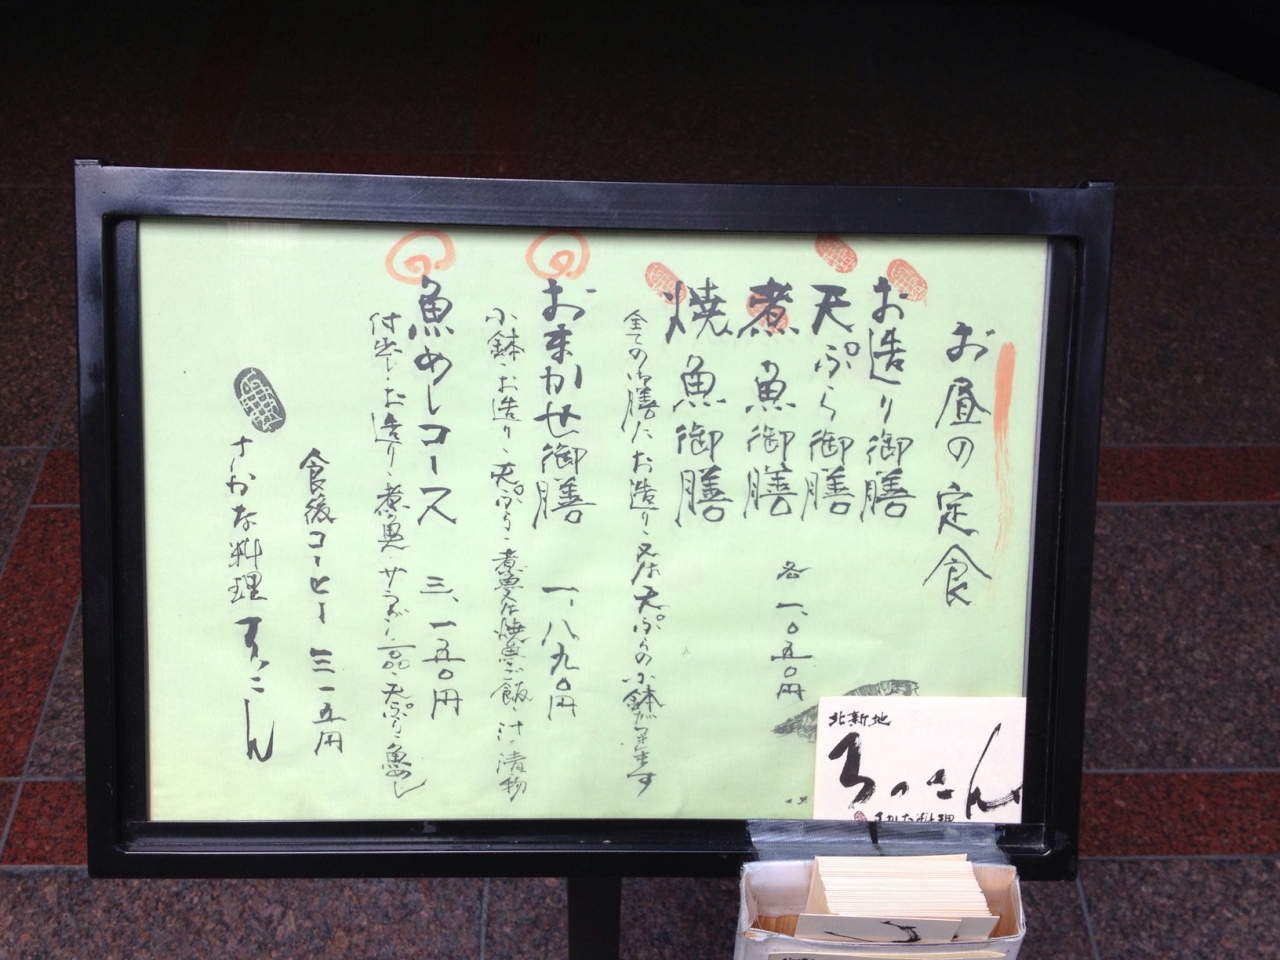 お昼の定食
お造り御膳
天ぷら御膳
煮魚御膳
焼魚御膳
各一、〇五〇円
全ての御膳にお造り又は天ぷらの小鉢が
おまかせ御膳 一、八九〇円
小鉢・お造り・天ぷら・煮魚又は焼魚・ご飯・汁・漬物
魚めしコース 三、一五〇円
付出し・お造り・煮魚・サラダ・一品・天ぷら・魚めし
食後コーヒー 三一五円
さかな料理 ちっこん
北新地
ちっこん
さかな料理